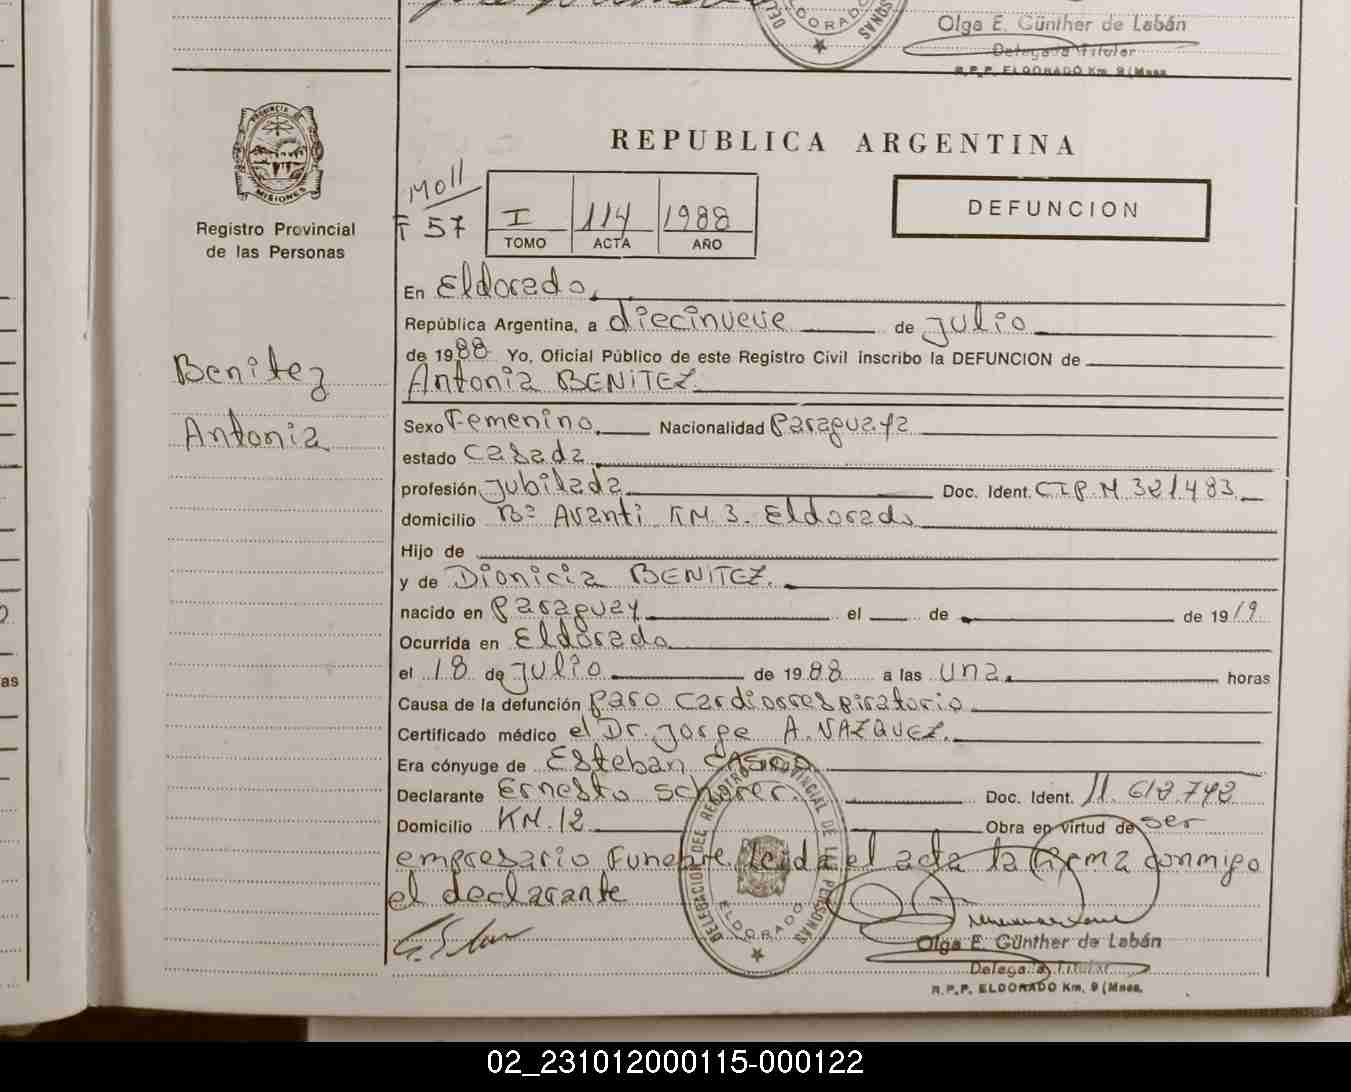 Olga E. Günther de Labán
Delegada Titular
R.P.P. ELDORADO Km. 9 (Mnes.
ELDORADO
PROVINCIA DE
MISIONES
Registro Provincial
de las Personas
REPUBLICA ARGENTINA
DEFUNCION
Moll
F 57
I 114 1988
TOMO ACTA AÑO
En Eldorado
República Argentina, a diecinueve de julio
de 1988 Yo, Oficial Público de este Registro Civil inscribo la DEFUNCION de
Antonia BENITEZ
Benitez
Antonia
Sexo Femenino Nacionalidad Paraguaya
estado casada
profesión jubilada Doc. Ident. CIP.M 321483
domicilio Bº Avanti KM 3. Eldorado
Hijo de
y de Dionicia BENITEZ
nacido en Paraguay el de de 1919
Ocurrida en Eldorado
el 18 de julio de 1988 a las una horas
Causa de la defunción paro cardiorrespiratorio
Certificado médico el Dr. Jorge A. VAZQUEZ
Era cónyuge de Esteban
Declarante Ernesto Schorer. Doc. Ident. 11.612.742
Domicilio KM.12 Obra en virtud de ser
empresario Funebre. leida el acta la firma conmigo
el declarante
DELEGACION DEL REGISTRO PROVINCIAL DE LAS PERSONAS
ELDORADO
Olga E. Günther de Labán
Delegada Titular
R.P.P. ELDORADO Km. 9 (Mnes.
02_231012000115-000122